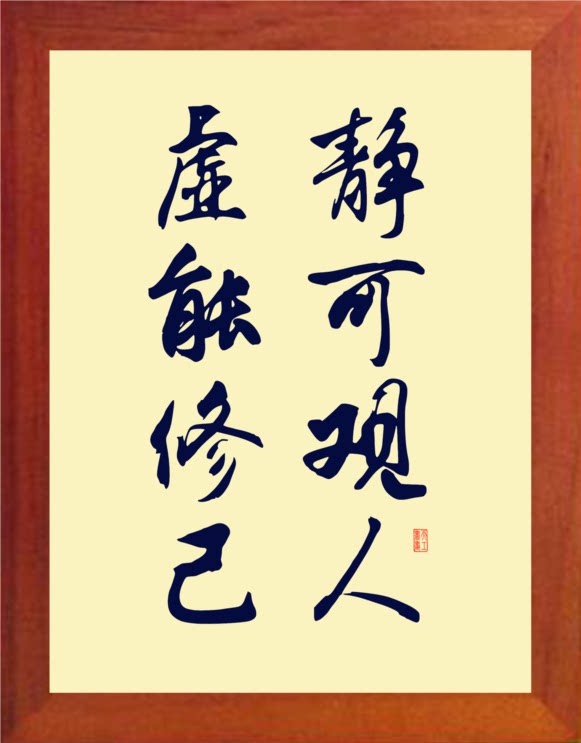 静可观人
虚能修己